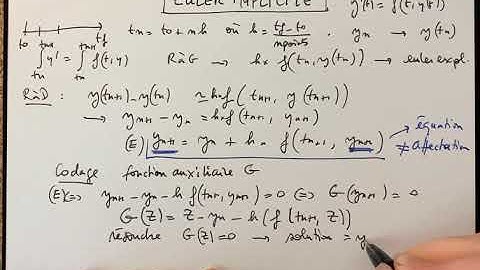 EULER IMPLICITE
y'(t) = f(t, y(t))
t0 tn tn+1 tf
tn = t0 + nh où h = tf - t0 / npoints
yn → y(tn)
∫ y' = ∫ f(t, y)
tn tn+1 tn tn+1
RàG → h × f(tn, y(tn)) → euler expl.
RàD : y(tn+1) - y(tn) ≃ h × f(tn+1, y(tn+1))
→ yn+1 - yn = h × f(tn+1, yn+1)
(E) yn+1 = yn + h × f(tn+1, yn+1) → équation
≠ affectation
Codage fonction auxiliaire G
(E) ⟺ yn+1 - yn - h f(tn+1, yn+1) = 0 ⟺ G(yn+1) = 0
G(Z) = Z - yn - h (f(tn+1, Z))
résoudre G(Z) = 0 → solution = y